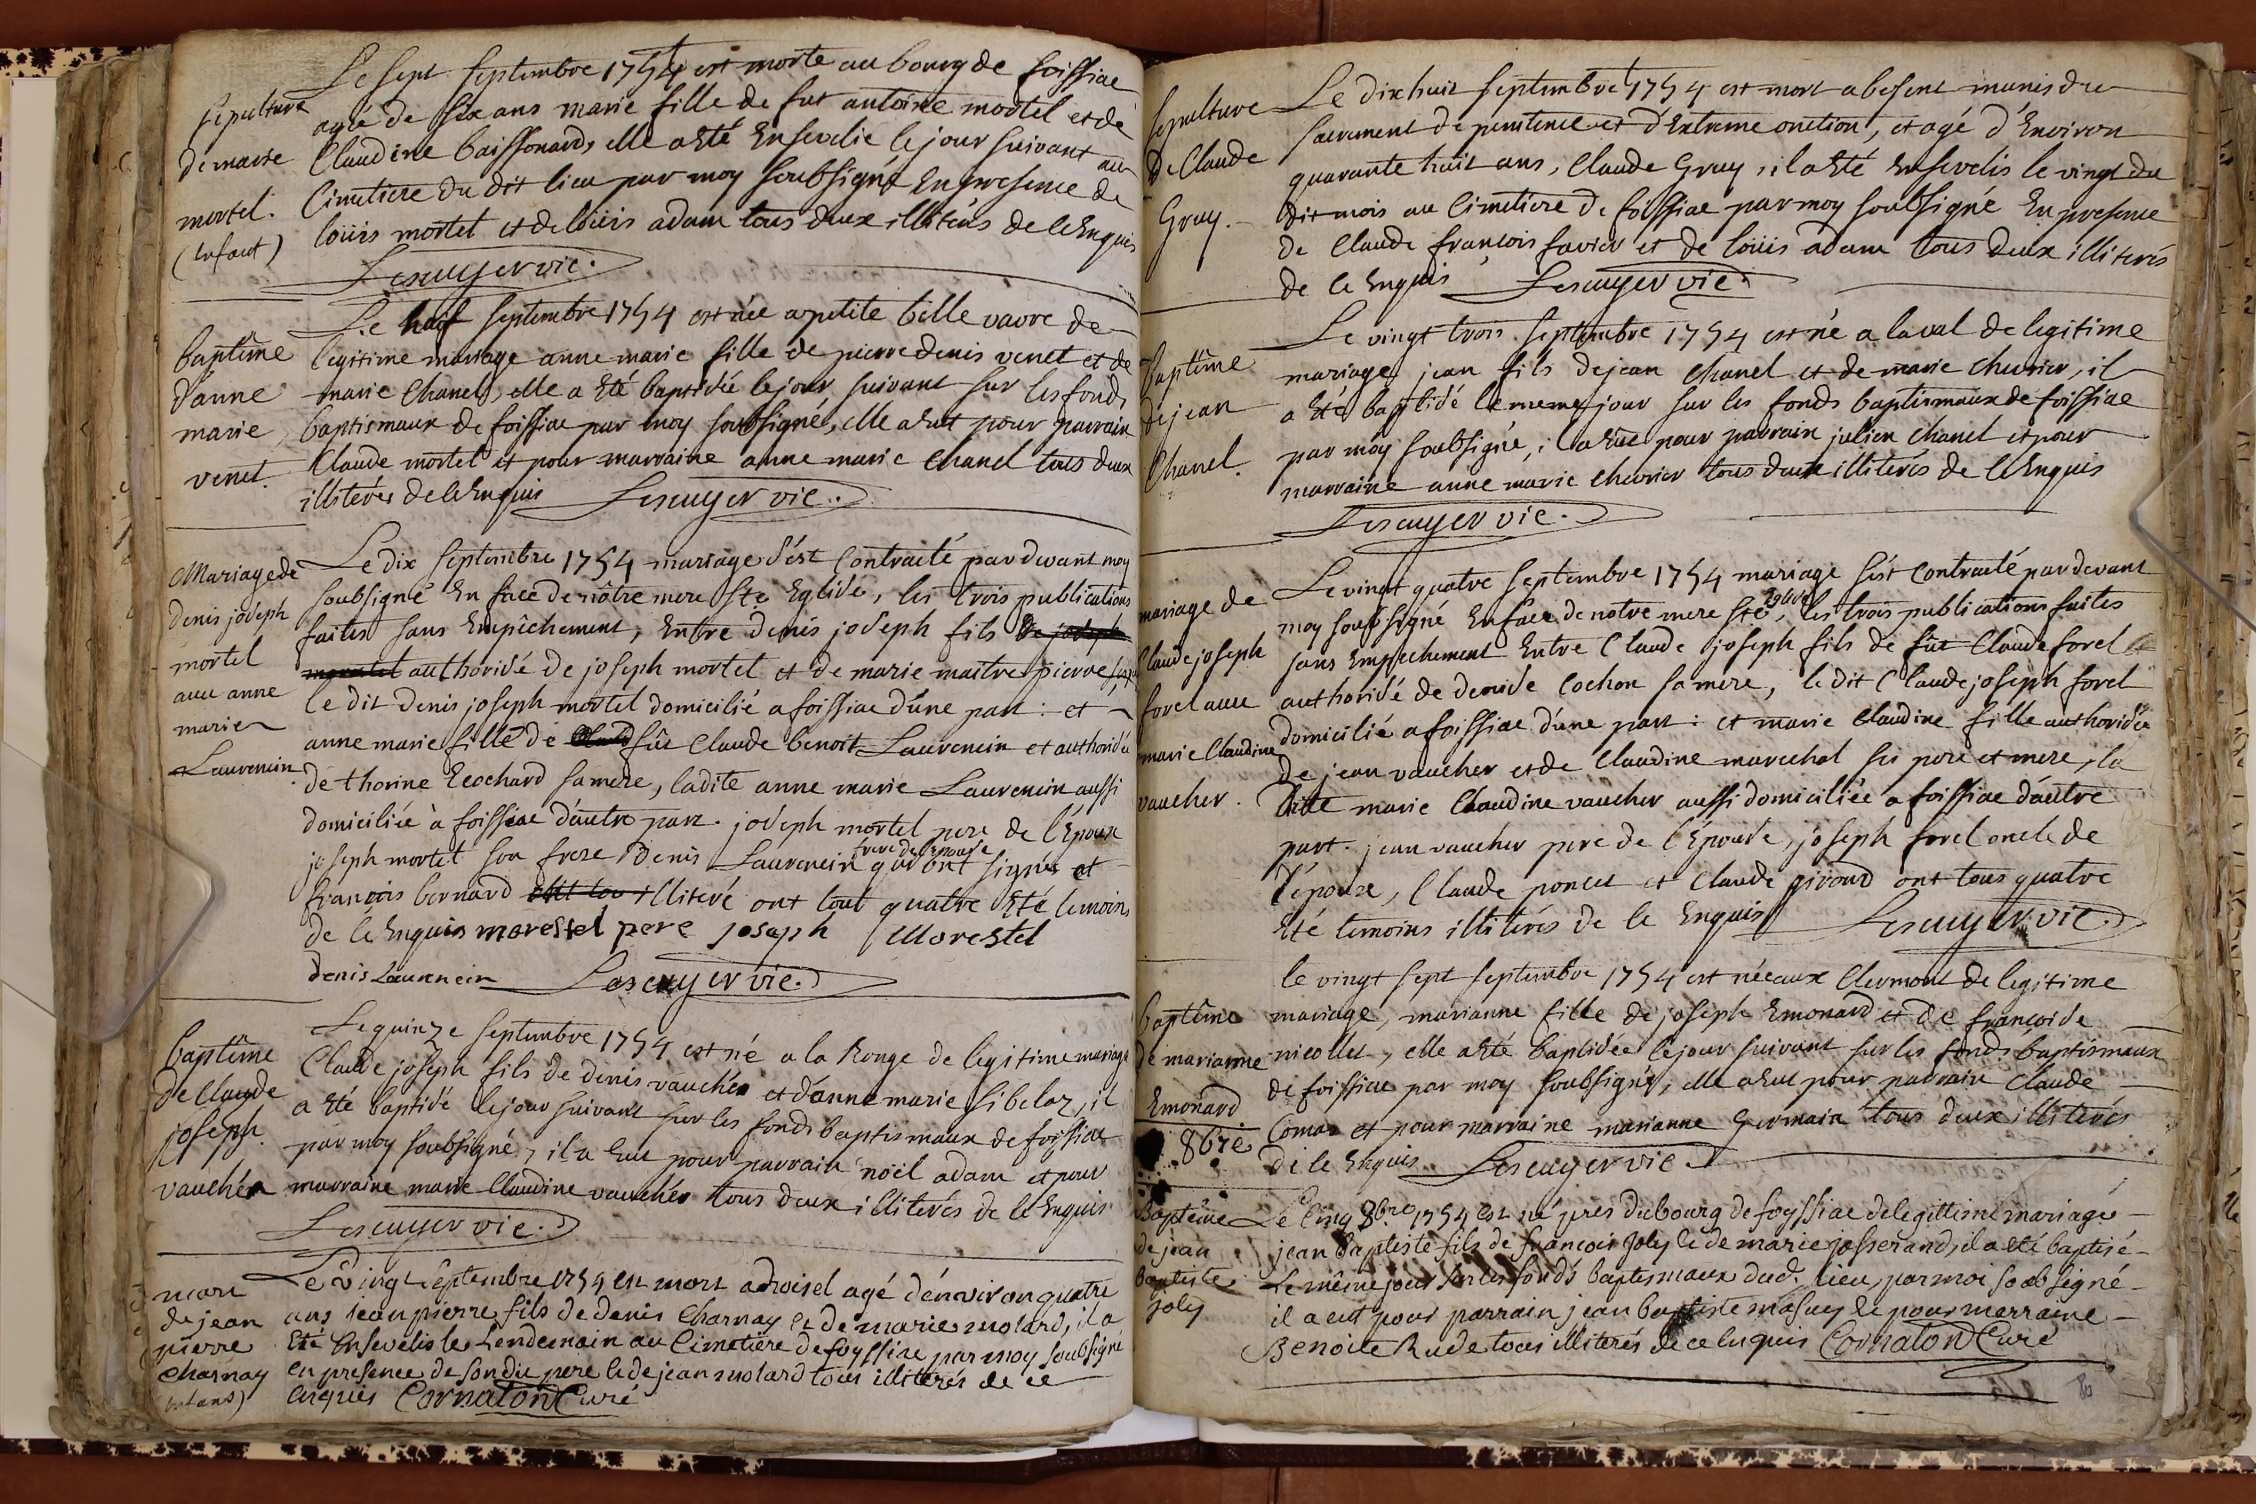 Sepulture
de marie
mortel.
(enfant)
Le sept septembre 1754 est morte au bourg de foissiac
agée de six ans marie fille de fut antoine mortel et de
Claudine baissonard, elle a Eté Ensevelie le jour suivant au
Cimetiere du dit lieu par moy soubsigné En presence de
loüis mortel et de loüis adam tous deux illiterés de ce Enquis
Lescuyer vic.
baptême
d'anne
marie
venet.
Le huit septembre 1754 est née a petite bille vavre de
legitime mariage anne marie fille de pierre denis venet et de
marie Chanel, elle a Eté baptisée le jour suivant sur les fonds
baptismaux de foissiac par moy soubsigné, elle a eut pour parrain
Claude mortel et pour marraine anne marie Chanel tous deux
illiterés de ce Enquis Lescuyer vic.
Mariage de
denis joseph
mortel
avec anne
marie
Laurencin.
Le dix septembre 1754 mariage s'ést Contracté pardevant moy
soubsigné En face de nôtre mere Ste Eglise, les trois publications
faites sans Empêchement, Entre denis joseph fils de joseph
authorisé de joseph mortel et de marie maitre pierre
le dit denis joseph mortel domicilié a foissiac d'une part : et
anne marie fille de fût Claude benoit Laurencin et authorisée
de thorine Ecochard sa mere, ladite anne marie Laurencin aussi
domiciliée à foissiac d'autre part. joseph mortel pere de l'Epoux
joseph mortel son frere denis Laurencin frere de l'epouse qui ont signés et
françois bernard illiteré ont tout quatre Eté temoins
de ce Enquis morestel pere joseph Morestel
denis Laurencin Lescuyer vic.
baptême
de Claude
joseph
vauchér
Le quinze septembre 1754 est né a la Rouge de legitime mariage
Claude joseph fils de denis vauchér et d'anne marie sibelaz, il
a Eté baptisé le jour suivant sur les fonds baptismaux de foissiac
par moy soubsigné, il a eut pour parrain noël adam et pour
marraine marie Claudine vauchér tous deux illiterés de ce Enquis
Lescuyer vic.
mort
de jean
pierre
Charnay
(enfans)
Le vingt septembre 1754 est mort a droisel agé d'énviron quatre
ans jean pierre fils de denis Charnay et de marie molard, il a
Eté Ensevelis le Lendemain au Cimetiere de foyssiac par moy soubsigné
en presence de sondit pere et de jean molard tous illiterés de ce
enquis Cornaton Curé
Sepulture
de Claude
Gray.
Le dixhuit septembre 1754 est mort a besent munis du
sacrement de penitence et d'Extreme onction, et agé d'Environ
quarante huit ans, Claude Gray, il a Eté Ensevelis le vingt du
dit mois au Cimetiere de foissiac par moy soubsigné En presence
de Claude françois favier et de loüis adam tous deux illiterés
de ce Enquis Lescuyer vic.
Baptême
de jean
Chanel.
Le vingt trois septembre 1754 est né a laval de legitime
mariage jean fils de jean Chanel et de marie chevrier, il
a Eté baptisé le meme jour sur les fonds baptismaux de foissiac
par moy soubsigné, il a eut pour parrain julien Chanel et pour
marraine anne marie chevrier tous deux illiterés de ce Enquis
Lescuyer vic.
mariage de
Claude joseph
forel avec
marie Claudine
vaucher.
Le vingt quatre septembre 1754 mariage s'ést Contracté pardevant
moy soubsigné En face de notre mere Ste Eglise, les trois publications faites
sans Empechement Entre Claude joseph fils de fût Claude forel
authorisé de denise Cochon sa mere, le dit Claude joseph forel
domicilié a foissiac d'une part : et marie Claudine fille authorisée
de jean vaucher et de Claudine marechal ses pere et mere, la
dite marie Claudine vaucher aussi domiciliée a foissiac d'autre
part. jean vaucher pere de l'Epouse, joseph forel oncle de
l'époux, Claude poncet et Claude giroud ont tous quatre
Eté temoins illiterés de ce Enquis Lescuyer vic.
baptême
de marianne
Emonard
le vingt sept septembre 1754 est née aux Clermont de legitime
mariage, marianne fille de joseph Emonard et de françoise
nicollet, elle a Eté baptisée le jour suivant sur les fonds baptismaux
de foissiac par moy soubsigné, elle a eut pour parrain Claude
Comas et pour marraine marianne Germain tous deux illiterés
de ce Enquis Lescuyer vic.
8bre
Baptême
de jean
baptiste
joly
Le Cinq 8bre 1754 est né près du bourg de foyssiac de legittime mariage
jean baptiste fils de françois joly et de marie josserand, il a eté baptisé
Le même jour sur les fonds baptismaux dud. lieu, par moi soubsigné
il a eut pour parrain jean baptiste masuy et pour marraine
Benoite Rude tous illiterés de ce Enquis Cornaton Curé